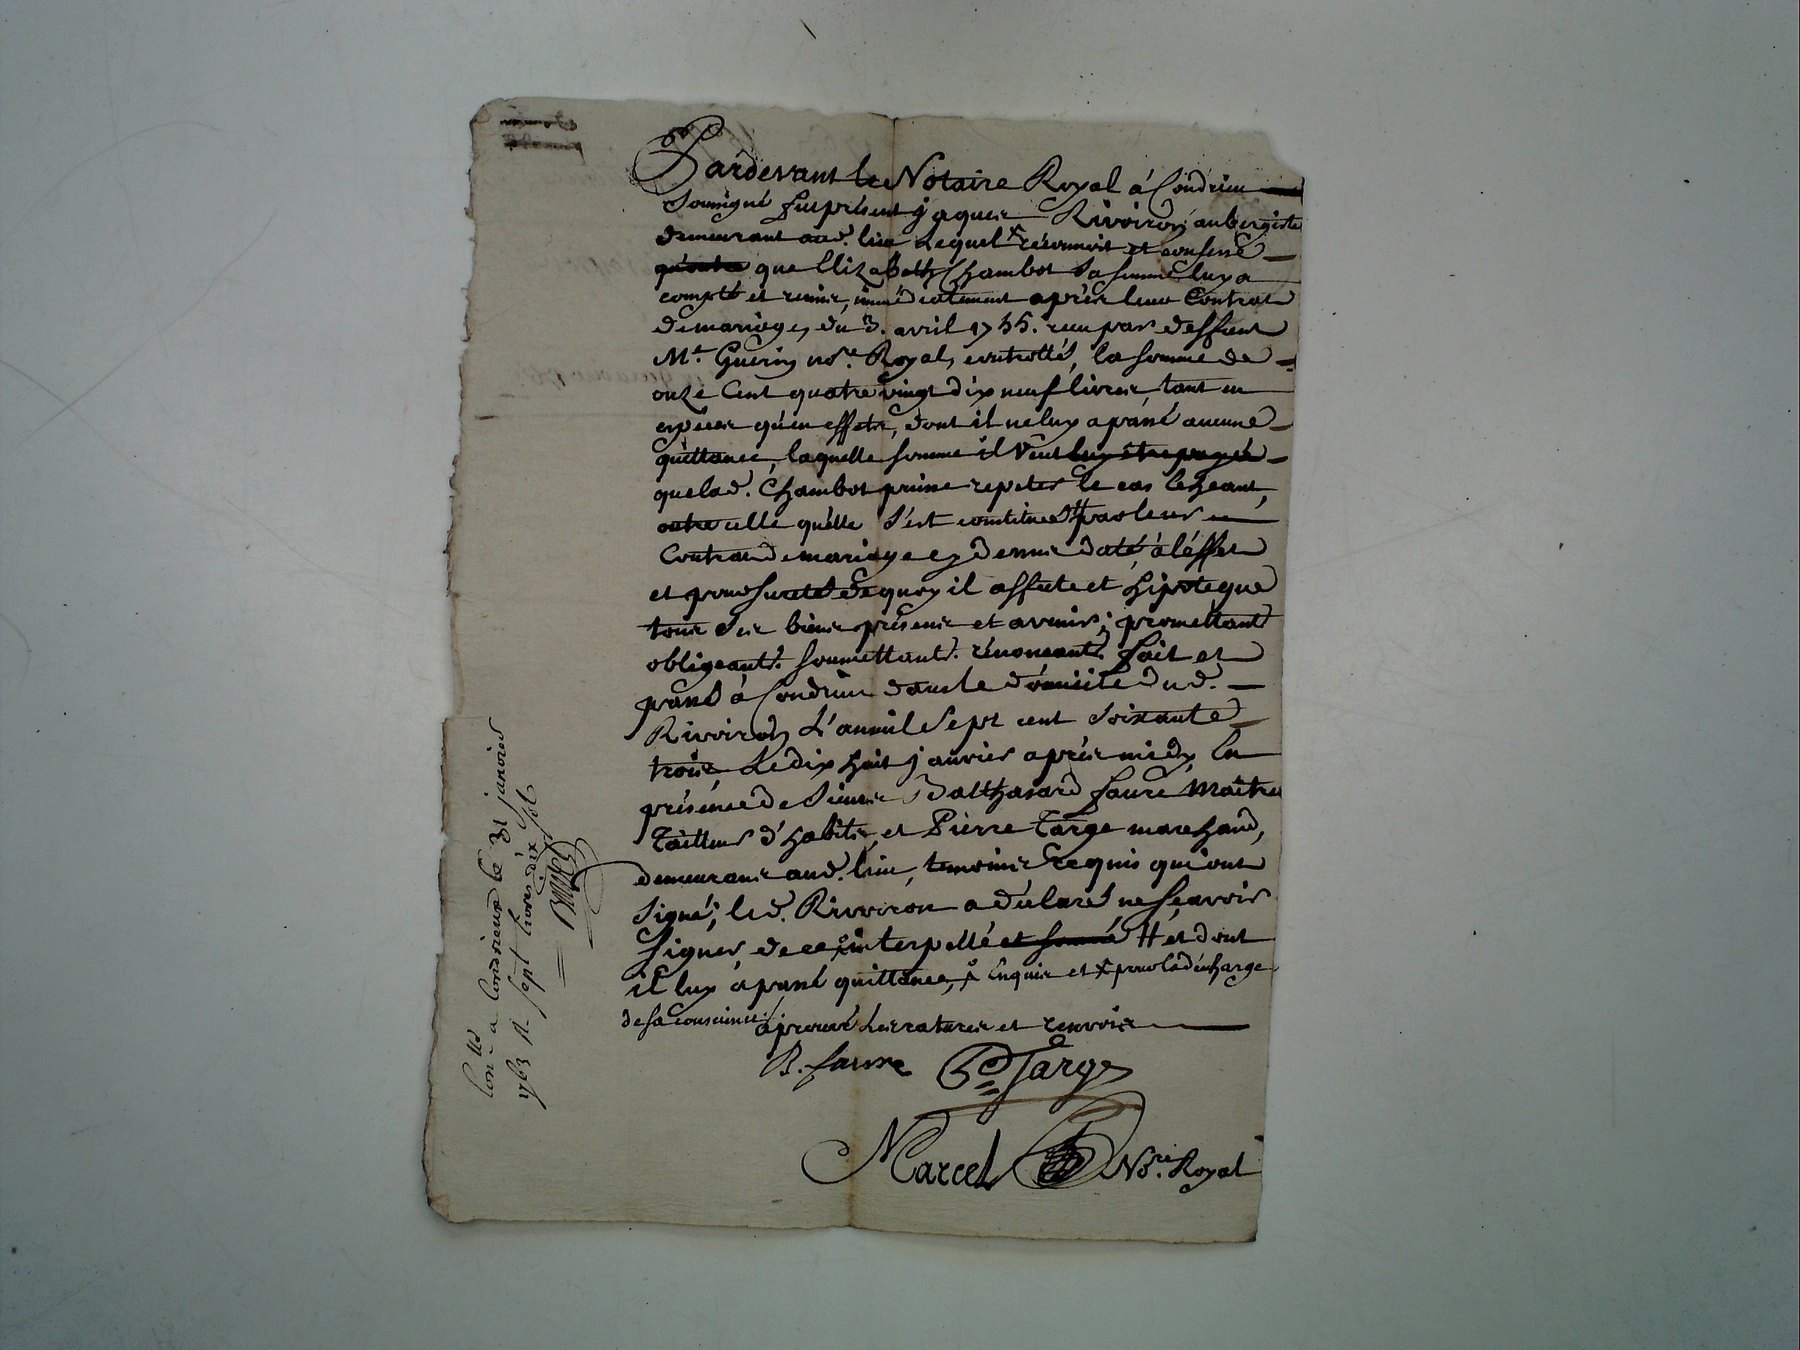 Pardevant le Notaire Royal à Condrieu
Soussigné fut présent jaques Rivoiron, aubergiste
demeurant aud. lieu Lequel x réconnoit et confesse
qu'outre que Elizabeth Chambot Sa femme luy a
compté et remis, immédiatement après leur Contrat
de mariage, du 3. avril 1755. reçu par deffunt
Me Guerin nore Royal, controllé, la somme de
onze Cent quatre vingt dix neuf livres, tant en
especes qu'en effets, dont il ne luy a passé aucune
quittance, laquelle somme il veut luy être payée
que lad. Chambot puisse repeter le cas écheant,
outre celle qu'elle S'est constituée # par leur
Contrat de mariage cy dessus daté, à l'éffet
et pour sureté de quoy il affecte et hipoteque
tous Ses biens présens et avenir; promettant
obligeant. soumettant. rénonceant. fait et
passé à Condrieu dans le domicile dud.
Rivoiron L'an mil Sept cent Soixante
trois, Le dix huit janvier après midy, En
présence de Sieurs Balthazard faure Maitre
Tailleur d'habits, et Pierre Targe marchand,
demeurans aud. lieu, temoins requis qui ont
Signé; led. Rivoiron a déclaré ne Sçavoir
Signer, de ce interpellé et sommé # et dont
il luy a passé quittance, Enquis et x pour la décharge
de sa conscience
aprouvé Les ratures et renvois
B. faure P Targe
Marcel Nore Royal
Conlle a Condrieux le 31 janvier
1763 R. sept livres dix sols